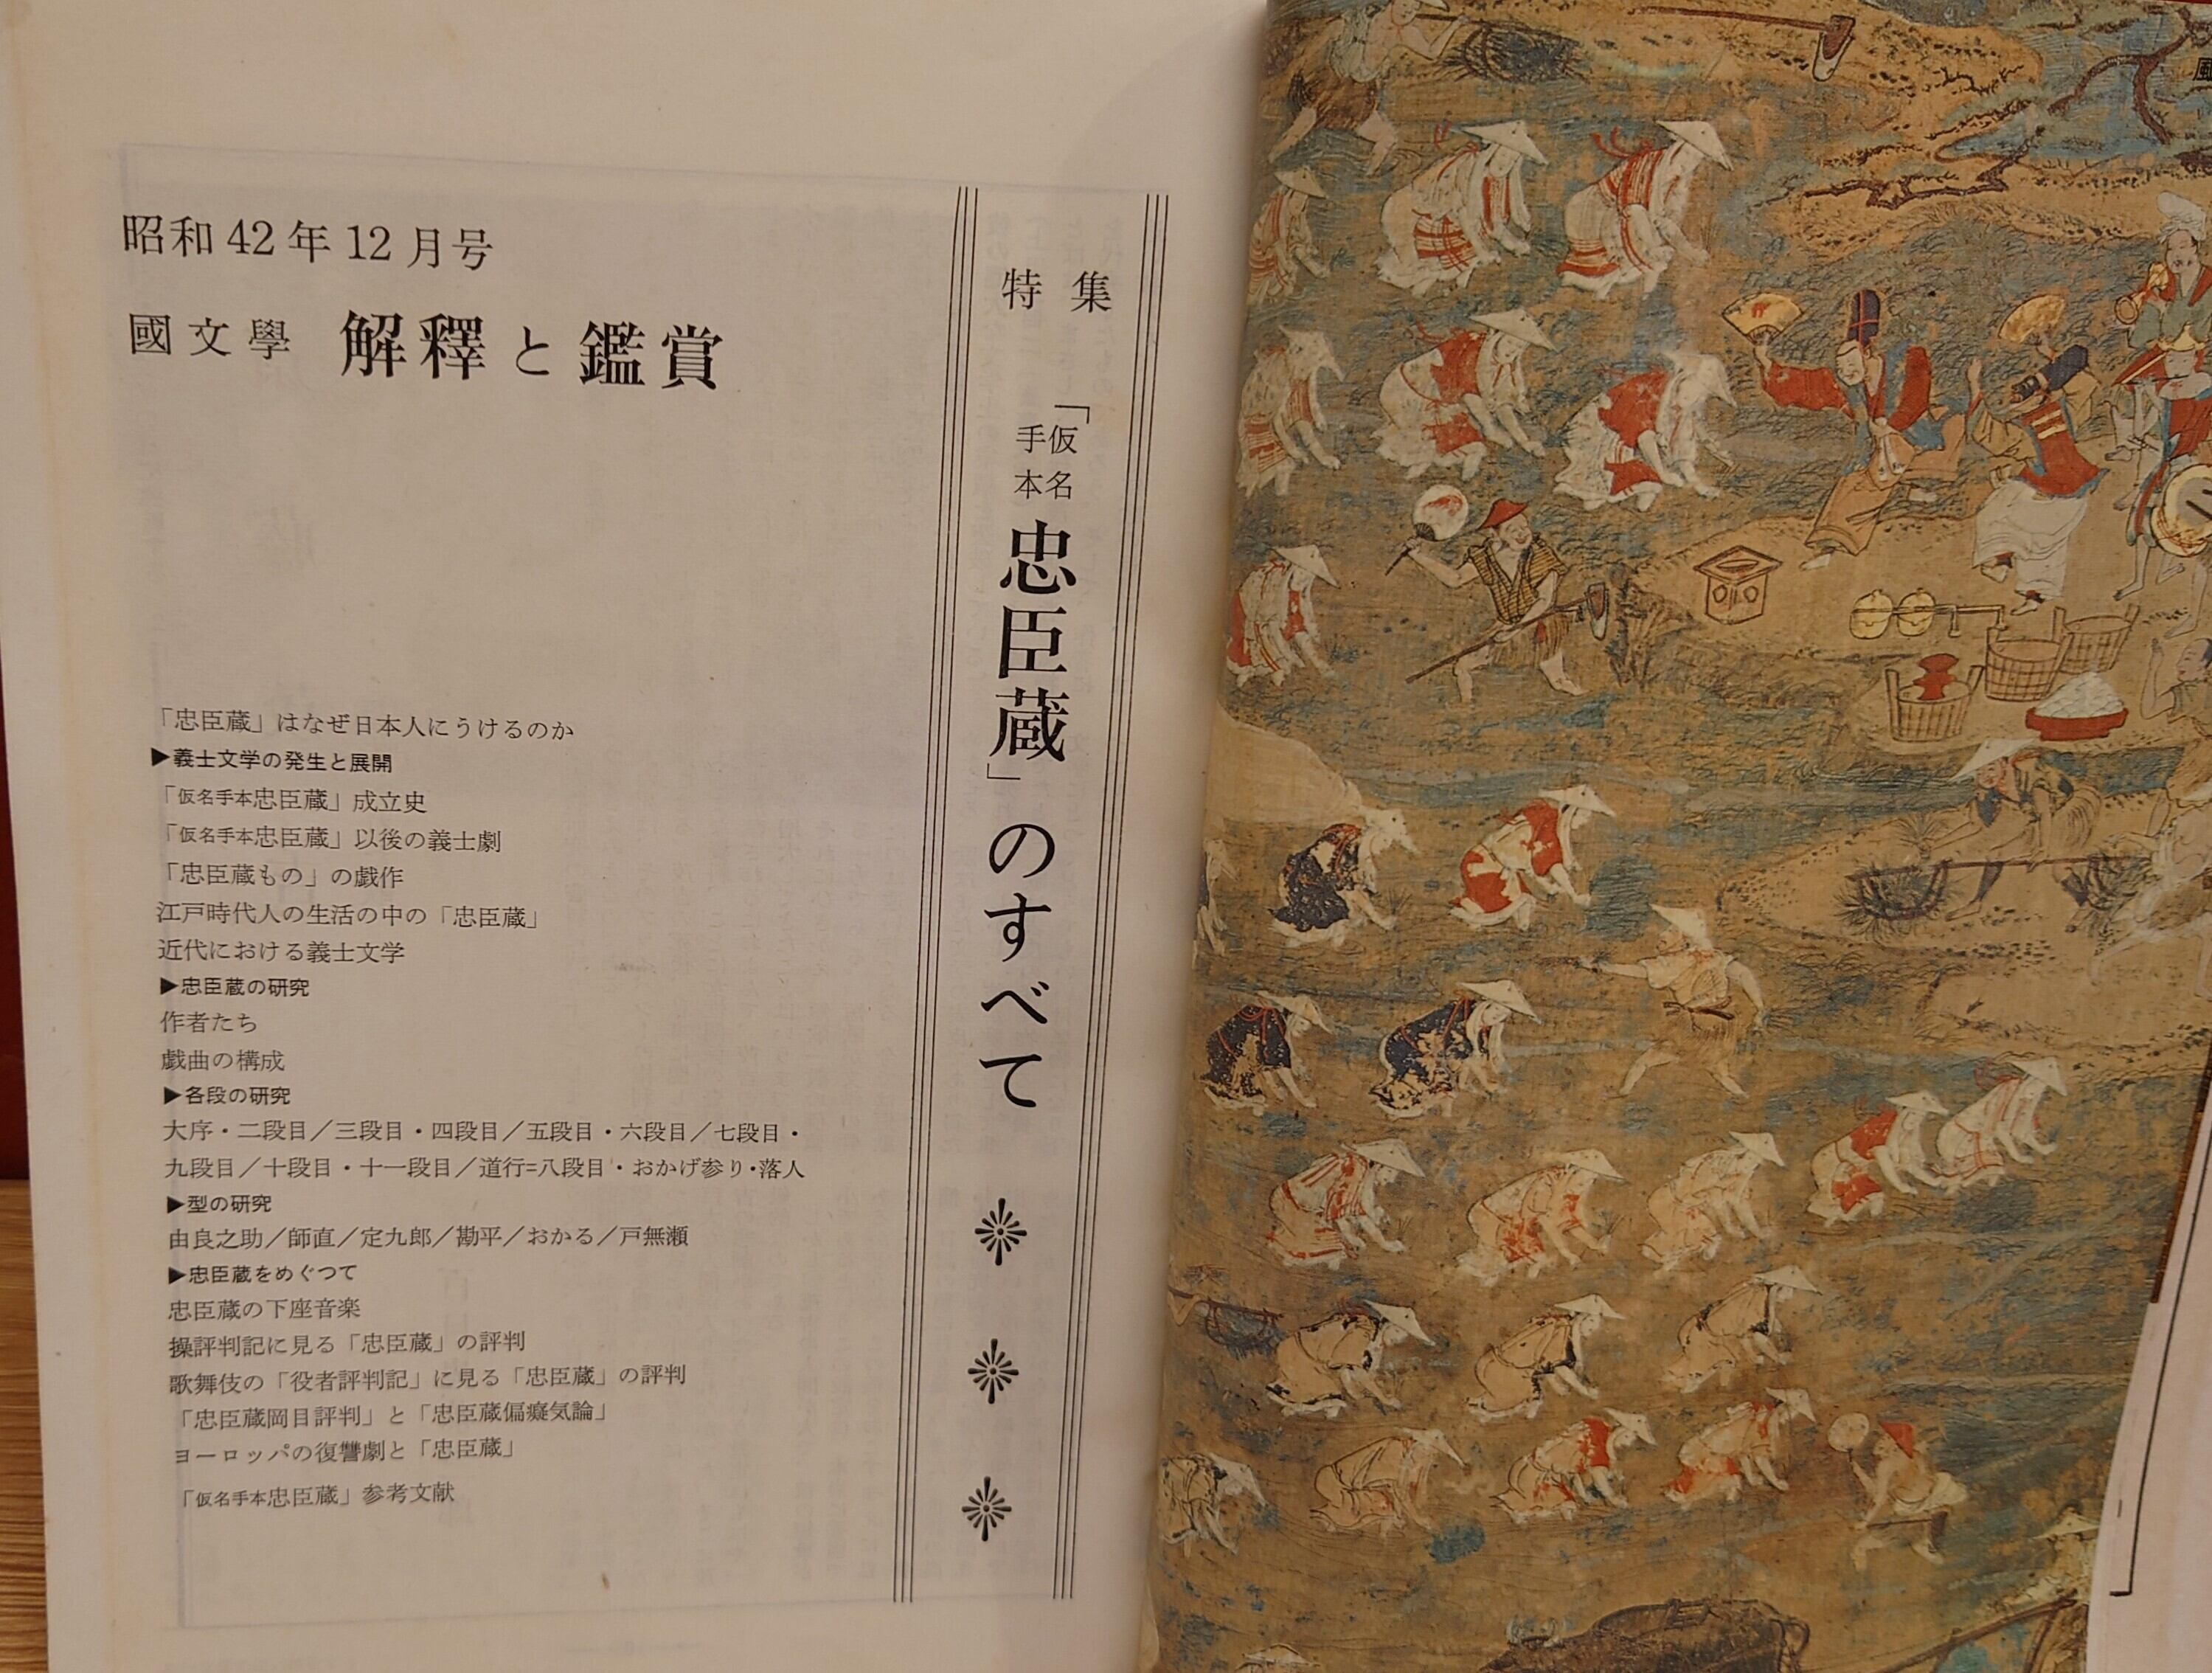 昭和42年12月号
國文學 解釋と鑑賞
特集
「仮名手本忠臣蔵」のすべて
「忠臣蔵」はなぜ日本人にうけるのか
▶義士文学の発生と展開
「仮名手本忠臣蔵」成立史
「仮名手本忠臣蔵」以後の義士劇
「忠臣蔵もの」の戯作
江戸時代人の生活の中の「忠臣蔵」
近代における義士文学
▶忠臣蔵の研究
作者たち
戯曲の構成
▶各段の研究
大序・二段目／三段目・四段目／五段目・六段目／七段目・
九段目／十段目・十一段目／道行=八段目・おかげ参り・落人
▶型の研究
由良之助／師直／定九郎／勘平／おかる／戸無瀬
▶忠臣蔵をめぐつて
忠臣蔵の下座音楽
操評判記に見る「忠臣蔵」の評判
歌舞伎の「役者評判記」に見る「忠臣蔵」の評判
「忠臣蔵岡目評判」と「忠臣蔵偏癡気論」
ヨーロッパの復讐劇と「忠臣蔵」
「仮名手本忠臣蔵」参考文献